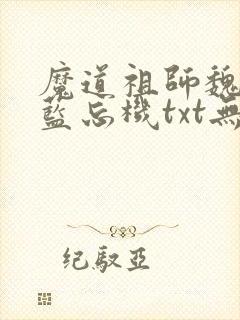 魔道祖師魏
藍忘機txt無
纪驭亞